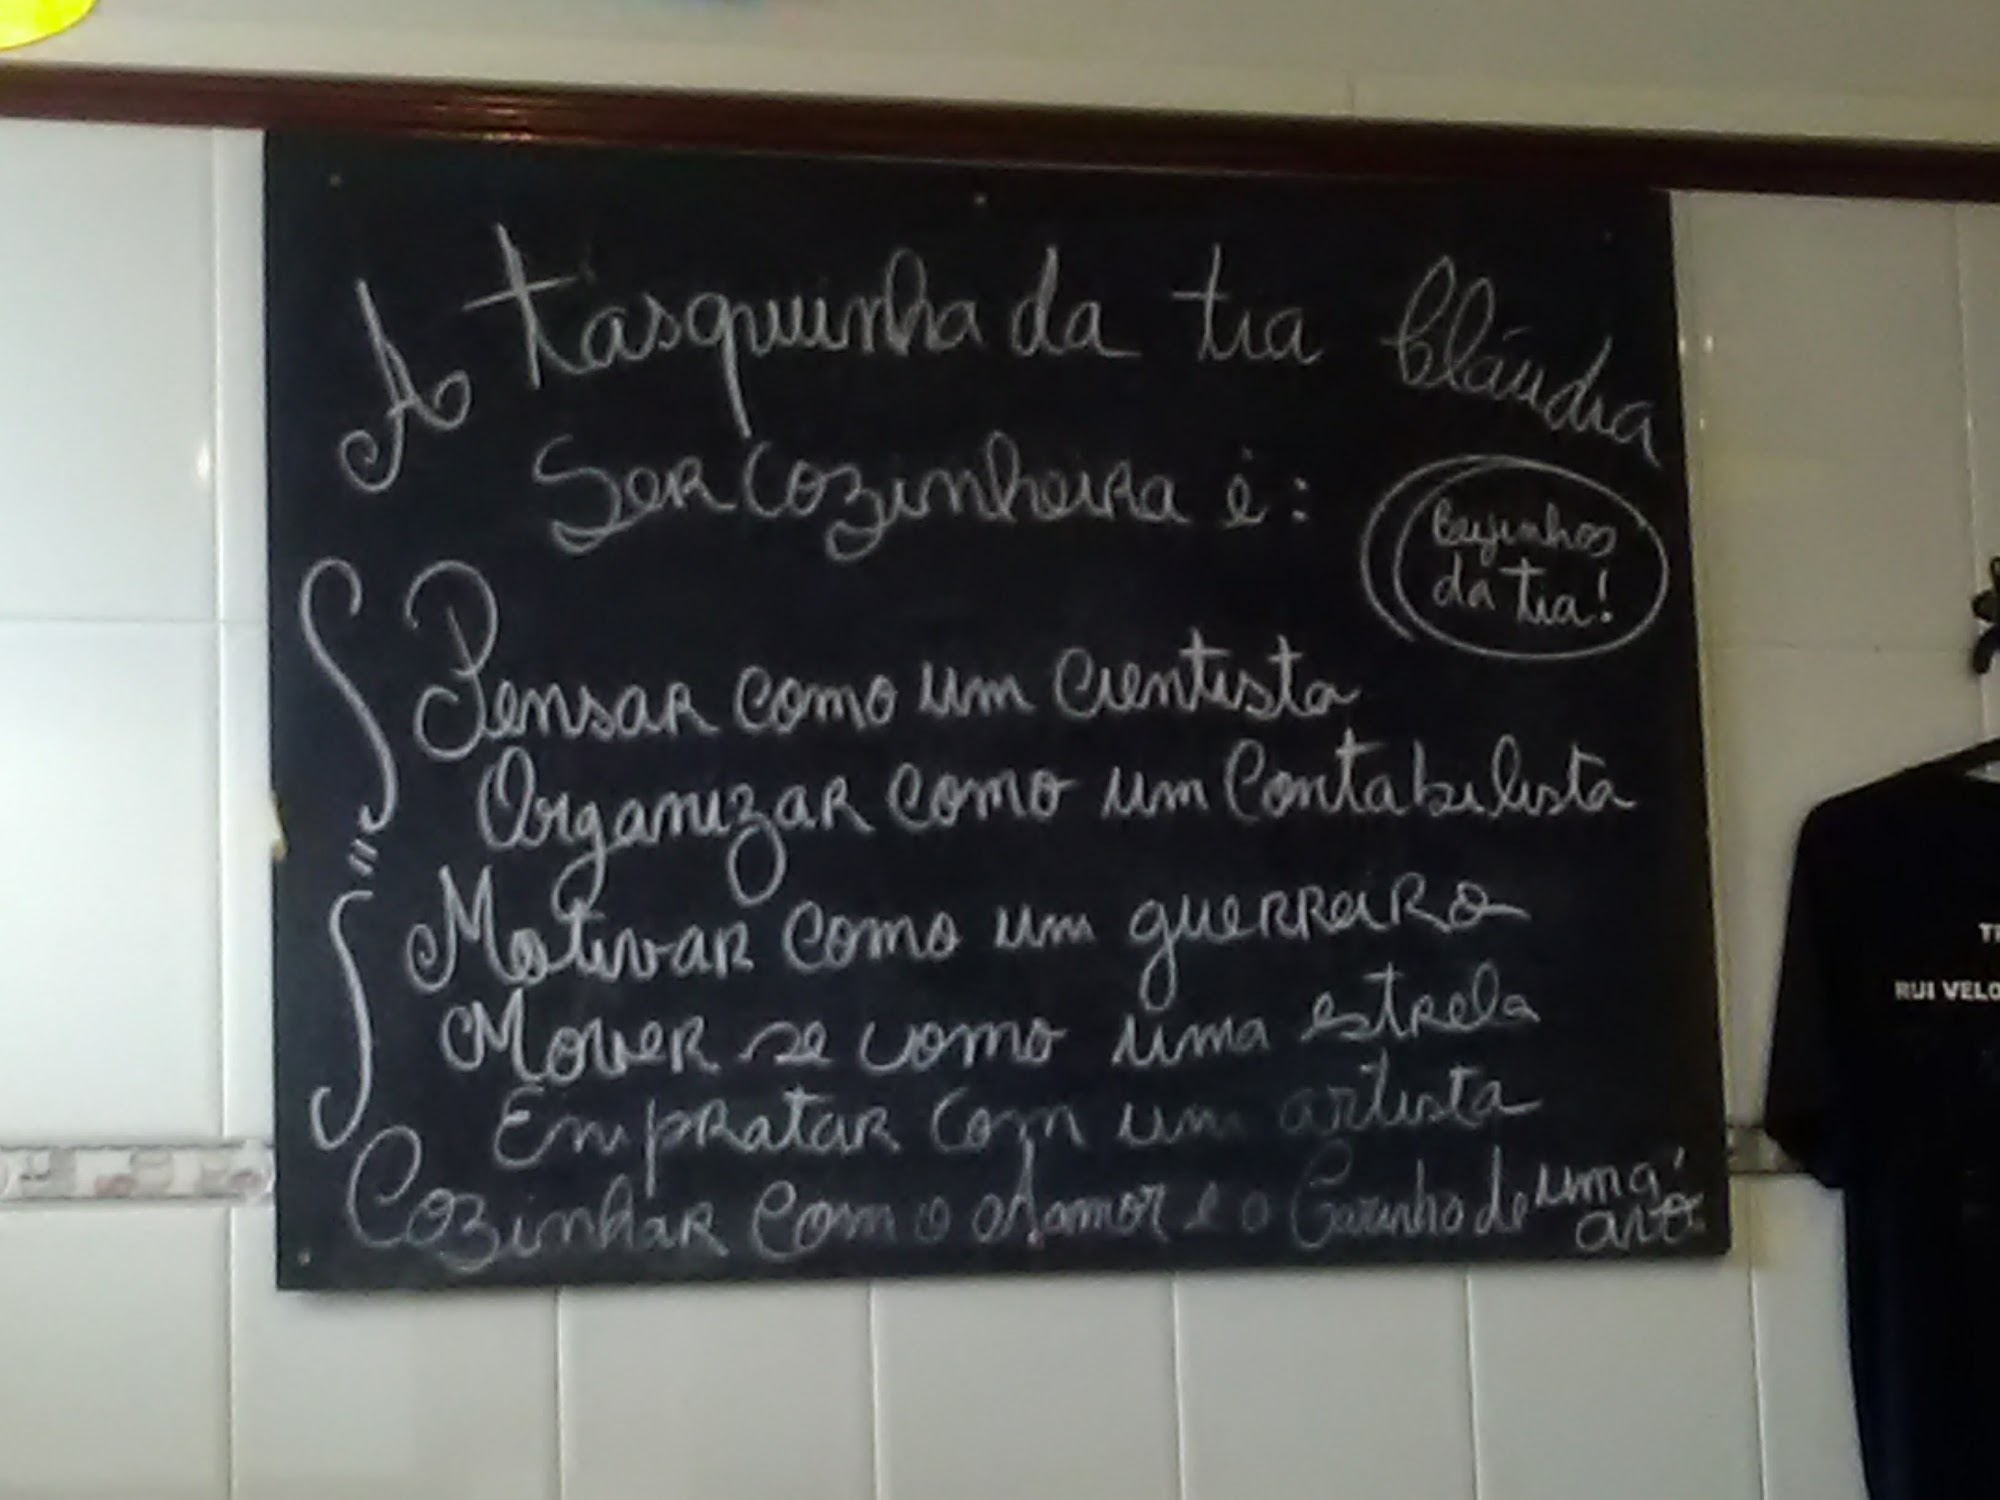 A tasquinha da tia Cláudia
Ser Cozinheira é:
Beijinhos
da tia!
Pensar como um cientista
Organizar como um Contabilista
Motivar como um guerreiro
Mover se como uma estrela
Empratar com um artista
Cozinhar com o Amor e o Carinho de uma
avó
RUI VELO